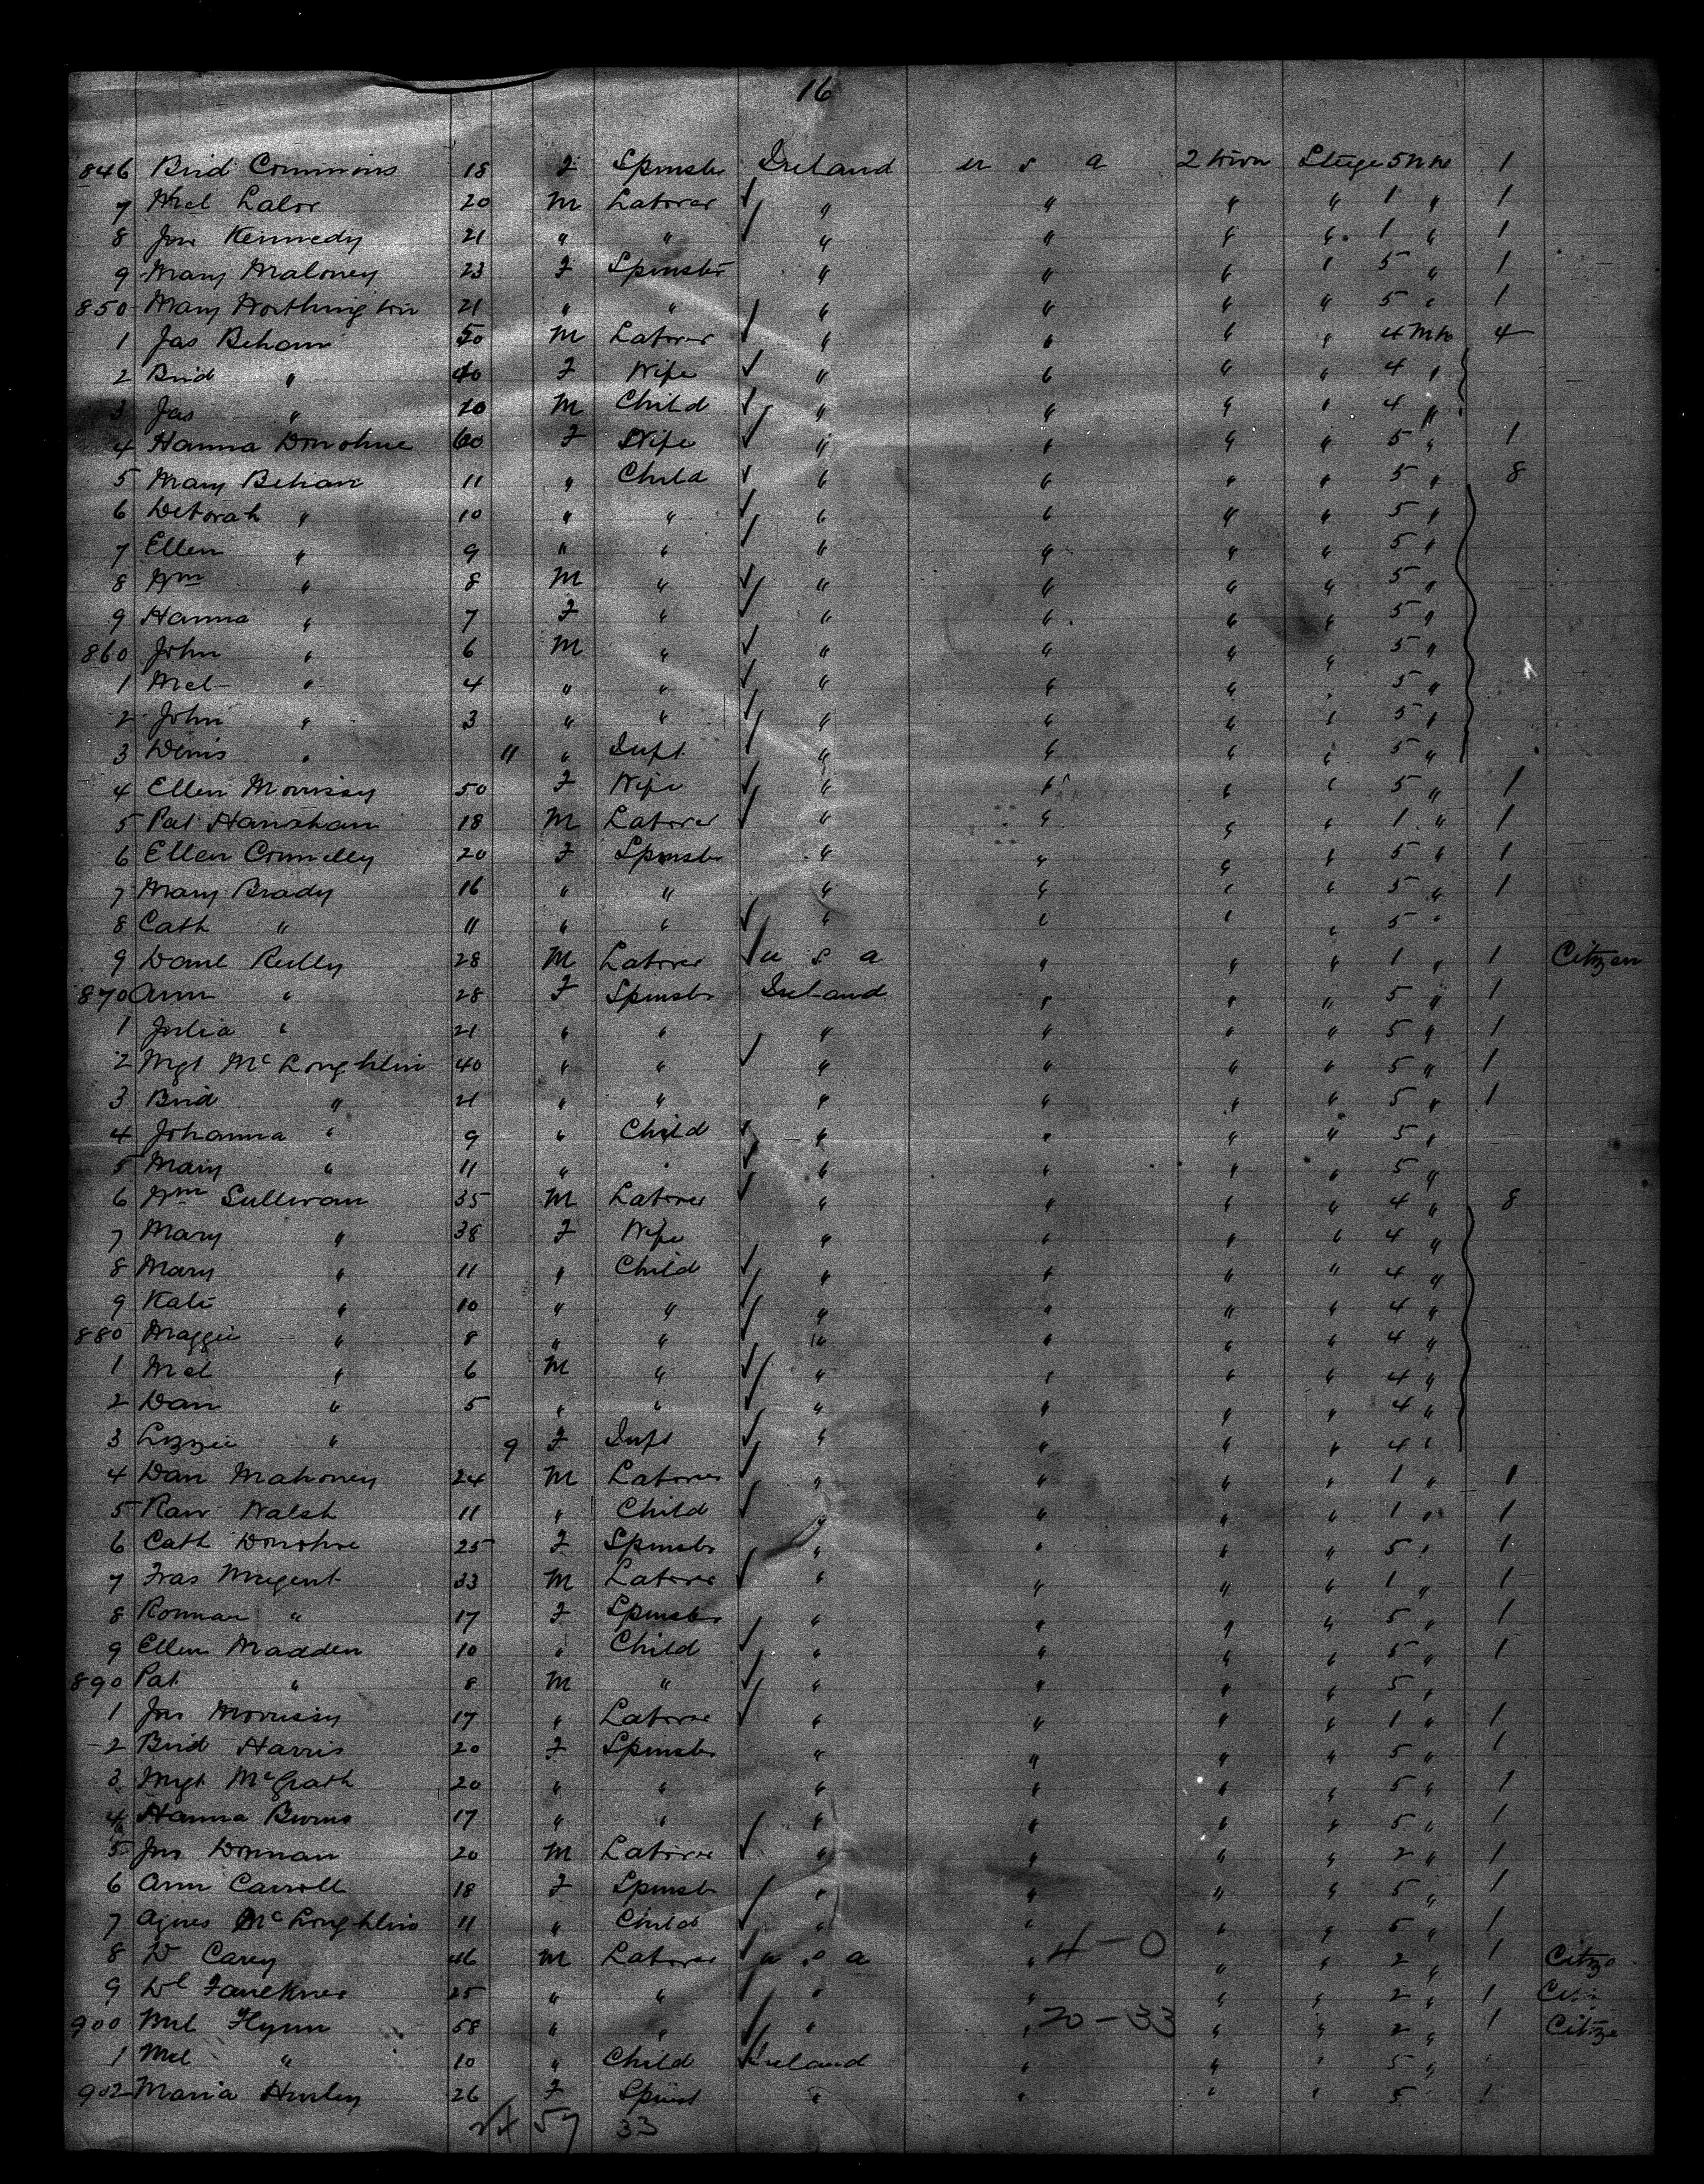 16
846 Brid Commins 18 F Spinstr Ireland U S A 2 town Stuge 5 1
7 Mcl Lalor 20 M Laborer ✓ " " " " 1 " 1
8 Jno Kennedy 21 " " ✓ " " " " 1 " 1
9 Mary Maloney 23 F Spinstr " " " " 5 " 1
850 Mary Worthington 21 " " " " " " 5 " 1
1 Jas Behan 50 M Laborer ✓ " " " " 4 4
2 Brid " 40 F Wife ✓ " " " " 4 "
3 Jas " 10 M Child ✓ " " " " 4 "
4 Hanna Donohue 60 F Wife ✓ " " " " 5 " 1
5 Mary Behan 11 " Child ✓ " " " " 5 " 8
6 Deborah " 10 " " ✓ " " " " 5 "
7 Ellen " 9 " " ✓ " " " " 5 "
8 Wm " 8 M " ✓ " " " " 5 "
9 Hanna " 7 F " ✓ " " " " 5 "
860 John " 6 M " ✓ " " " " 5 "
1 Mcl " 4 " " ✓ " " " " 5 "
2 John " 3 " " ✓ " " " " 5 "
3 Denis " 11 " Inft ✓ " " " " 5 "
4 Ellen Morrissy 50 F Wife ✓ " " " " 5 " 1
5 Pat Hanrahan 18 M Laborer ✓ " " " " 1 " 1
6 Ellen Connelly 20 F Spinstr " " " " 5 " 1
7 Mary Brady 16 " " " " " " 5 " 1
8 Cath " 11 " " ✓ " " " " 5 "
9 Danl Reilly 28 M Laborer ✓ U S A " " " 1 " 1 Citizen
870 Ann " 28 F Spinstr Ireland " " " 5 " 1
1 Julia " 21 " " " " " " 5 " 1
2 Mgt McLoughlin 40 " " ✓ " " " " 5 " 1
3 Brid " 21 " " " " " " 5 " 1
4 Johanna " 9 " Child ✓ " " " " 5 "
5 Mary " 11 " " ✓ " " " " 5 "
6 Wm Sullivan 35 M Laborer ✓ " " " " 4 " 8
7 Mary " 38 F Wife " " " " 4 "
8 Mary " 11 " Child ✓ " " " " 4 "
9 Kate " 10 " " ✓ " " " " 4 "
880 Maggie " 8 " " ✓ " " " " 4 "
1 Mcl " 6 M " ✓ " " " " 4 "
2 Dan " 5 " " ✓ " " " " 4 "
3 Lizzie " 9 F Inft ✓ " " " " 4 "
4 Dan Mahoney 24 M Laborer ✓ " " " " 1 " 1
5 Walsh 11 " Child ✓ " " " " 1 " 1
6 Cath Donohoe 25 F Spinstr " " " " 5 " 1
7 Fras 33 M Laborer ✓ " " " " 1 " 1
8 " 17 F Spinstr " " " " 5 " 1
9 Ellen Madden 10 " Child ✓ " " " " 5 " 1
890 Pat " 8 M " ✓ " " " " 5 "
1 Jno Morrissy 17 " Laborer ✓ " " " " 1 " 1
2 Brid Harris 20 F Spinstr " " " " 5 " 1
3 Mgt McGrath 20 " " " " " " 5 " 1
4 Hanna Burns 17 " " " " " " 5 " 1
5 Jno Donnan 20 M Laborer ✓ " " " " 2 " 1
6 Ann Carroll 18 F Spinstr " " " " 5 " 1
7 Agnes McLoughlin 11 " Child ✓ " " " " 5 " 1
8 D Carey 46 M Laborer ✓ U S A " 4-0 " " 2 " 1 Citzn
9 Dl Faulkner 25 " " ✓ " " " " 2 " 1
900 Mcl Flynn 58 " " ✓ " " 20-33 " " 2 " 1 Citzn
1 Mcl " 10 " Child ✓ Ireland " " " 5 "
902 Maria Hurley 26 F Spinst " " " " 5 " 1
57 33